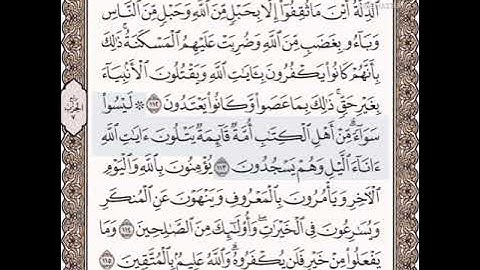 ٱلذِّلَّةُ أَيْنَ مَا ثُقِفُوٓا۟ إِلَّا بِحَبْلٍ مِّنَ ٱللَّهِ وَحَبْلٍ مِّنَ ٱلنَّاسِ
وَبَآءُو بِغَضَبٍ مِّنَ ٱللَّهِ وَضُرِبَتْ عَلَيْهِمُ ٱلْمَسْكَنَةُ ۚ ذَٰلِكَ
بِأَنَّهُمْ كَانُوا۟ يَكْفُرُونَ بِـَٔايَٰتِ ٱللَّهِ وَيَقْتُلُونَ ٱلْأَنۢبِيَآءَ
بِغَيْرِ حَقٍّ ۚ ذَٰلِكَ بِمَا عَصَوا۟ وَّكَانُوا۟ يَعْتَدُونَ ١١٢ ۞ لَيْسُوا۟
سَوَآءً ۗ مِّنْ أَهْلِ ٱلْكِتَٰبِ أُمَّةٌ قَآئِمَةٌ يَتْلُونَ ءَايَٰتِ ٱللَّهِ
ءَانَآءَ ٱلَّيْلِ وَهُمْ يَسْجُدُونَ ١١٣ يُؤْمِنُونَ بِٱللَّهِ وَٱلْيَوْمِ
ٱلْءَاخِرِ وَيَأْمُرُونَ بِٱلْمَعْرُوفِ وَيَنْهَوْنَ عَنِ ٱلْمُنكَرِ
وَيُسَٰرِعُونَ فِى ٱلْخَيْرَٰتِ ۖ وَأُو۟لَٰٓئِكَ مِنَ ٱلصَّٰلِحِينَ ١١٤ وَمَا
يَفْعَلُوا۟ مِنْ خَيْرٍ فَلَن يُكْفَرُوهُ ۗ وَٱللَّهُ عَلِيمٌۢ بِٱلْمُتَّقِينَ ١١٥